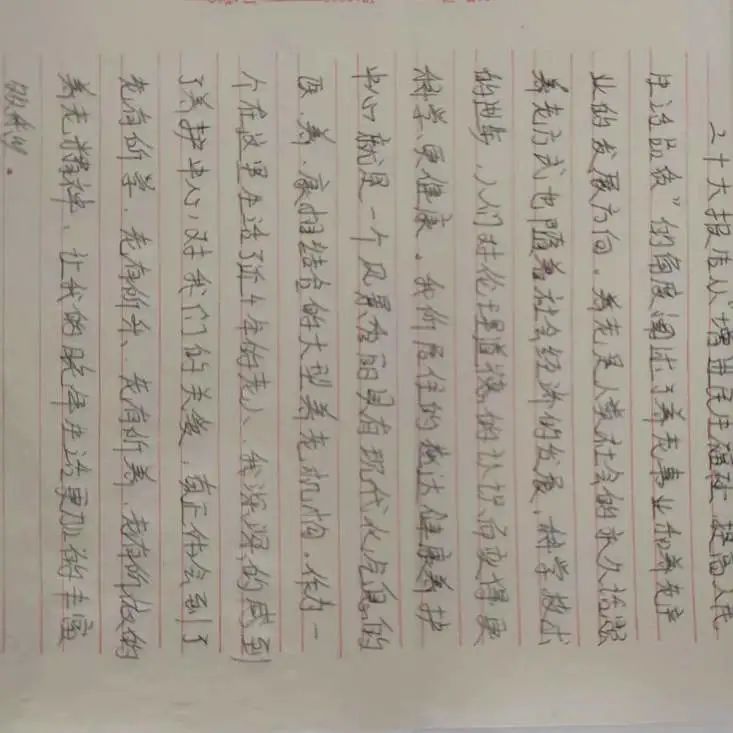 二十大报告从"增进民生福祉,提高人民
生活品质"的角度阐述了养老事业和养老产
业的发展方向。养老是人类社会的永久话题
养老方式也随着社会经济的发展,科学技术
的进步,人们对伦理道德的认识而变得更
科学、更健康。我们居住的 健康养护
中心就是一个风景秀丽具有现代化气息的
医、养、康相结合的大型养老机构。作为一
个在这里生活了近十年的老人,我深深的感到
了养护中心对我们的关爱,真正体会到了
老有所学、老有所乐、老有所养、老有所做的
养老精神,让我的晚年生活更加的丰富